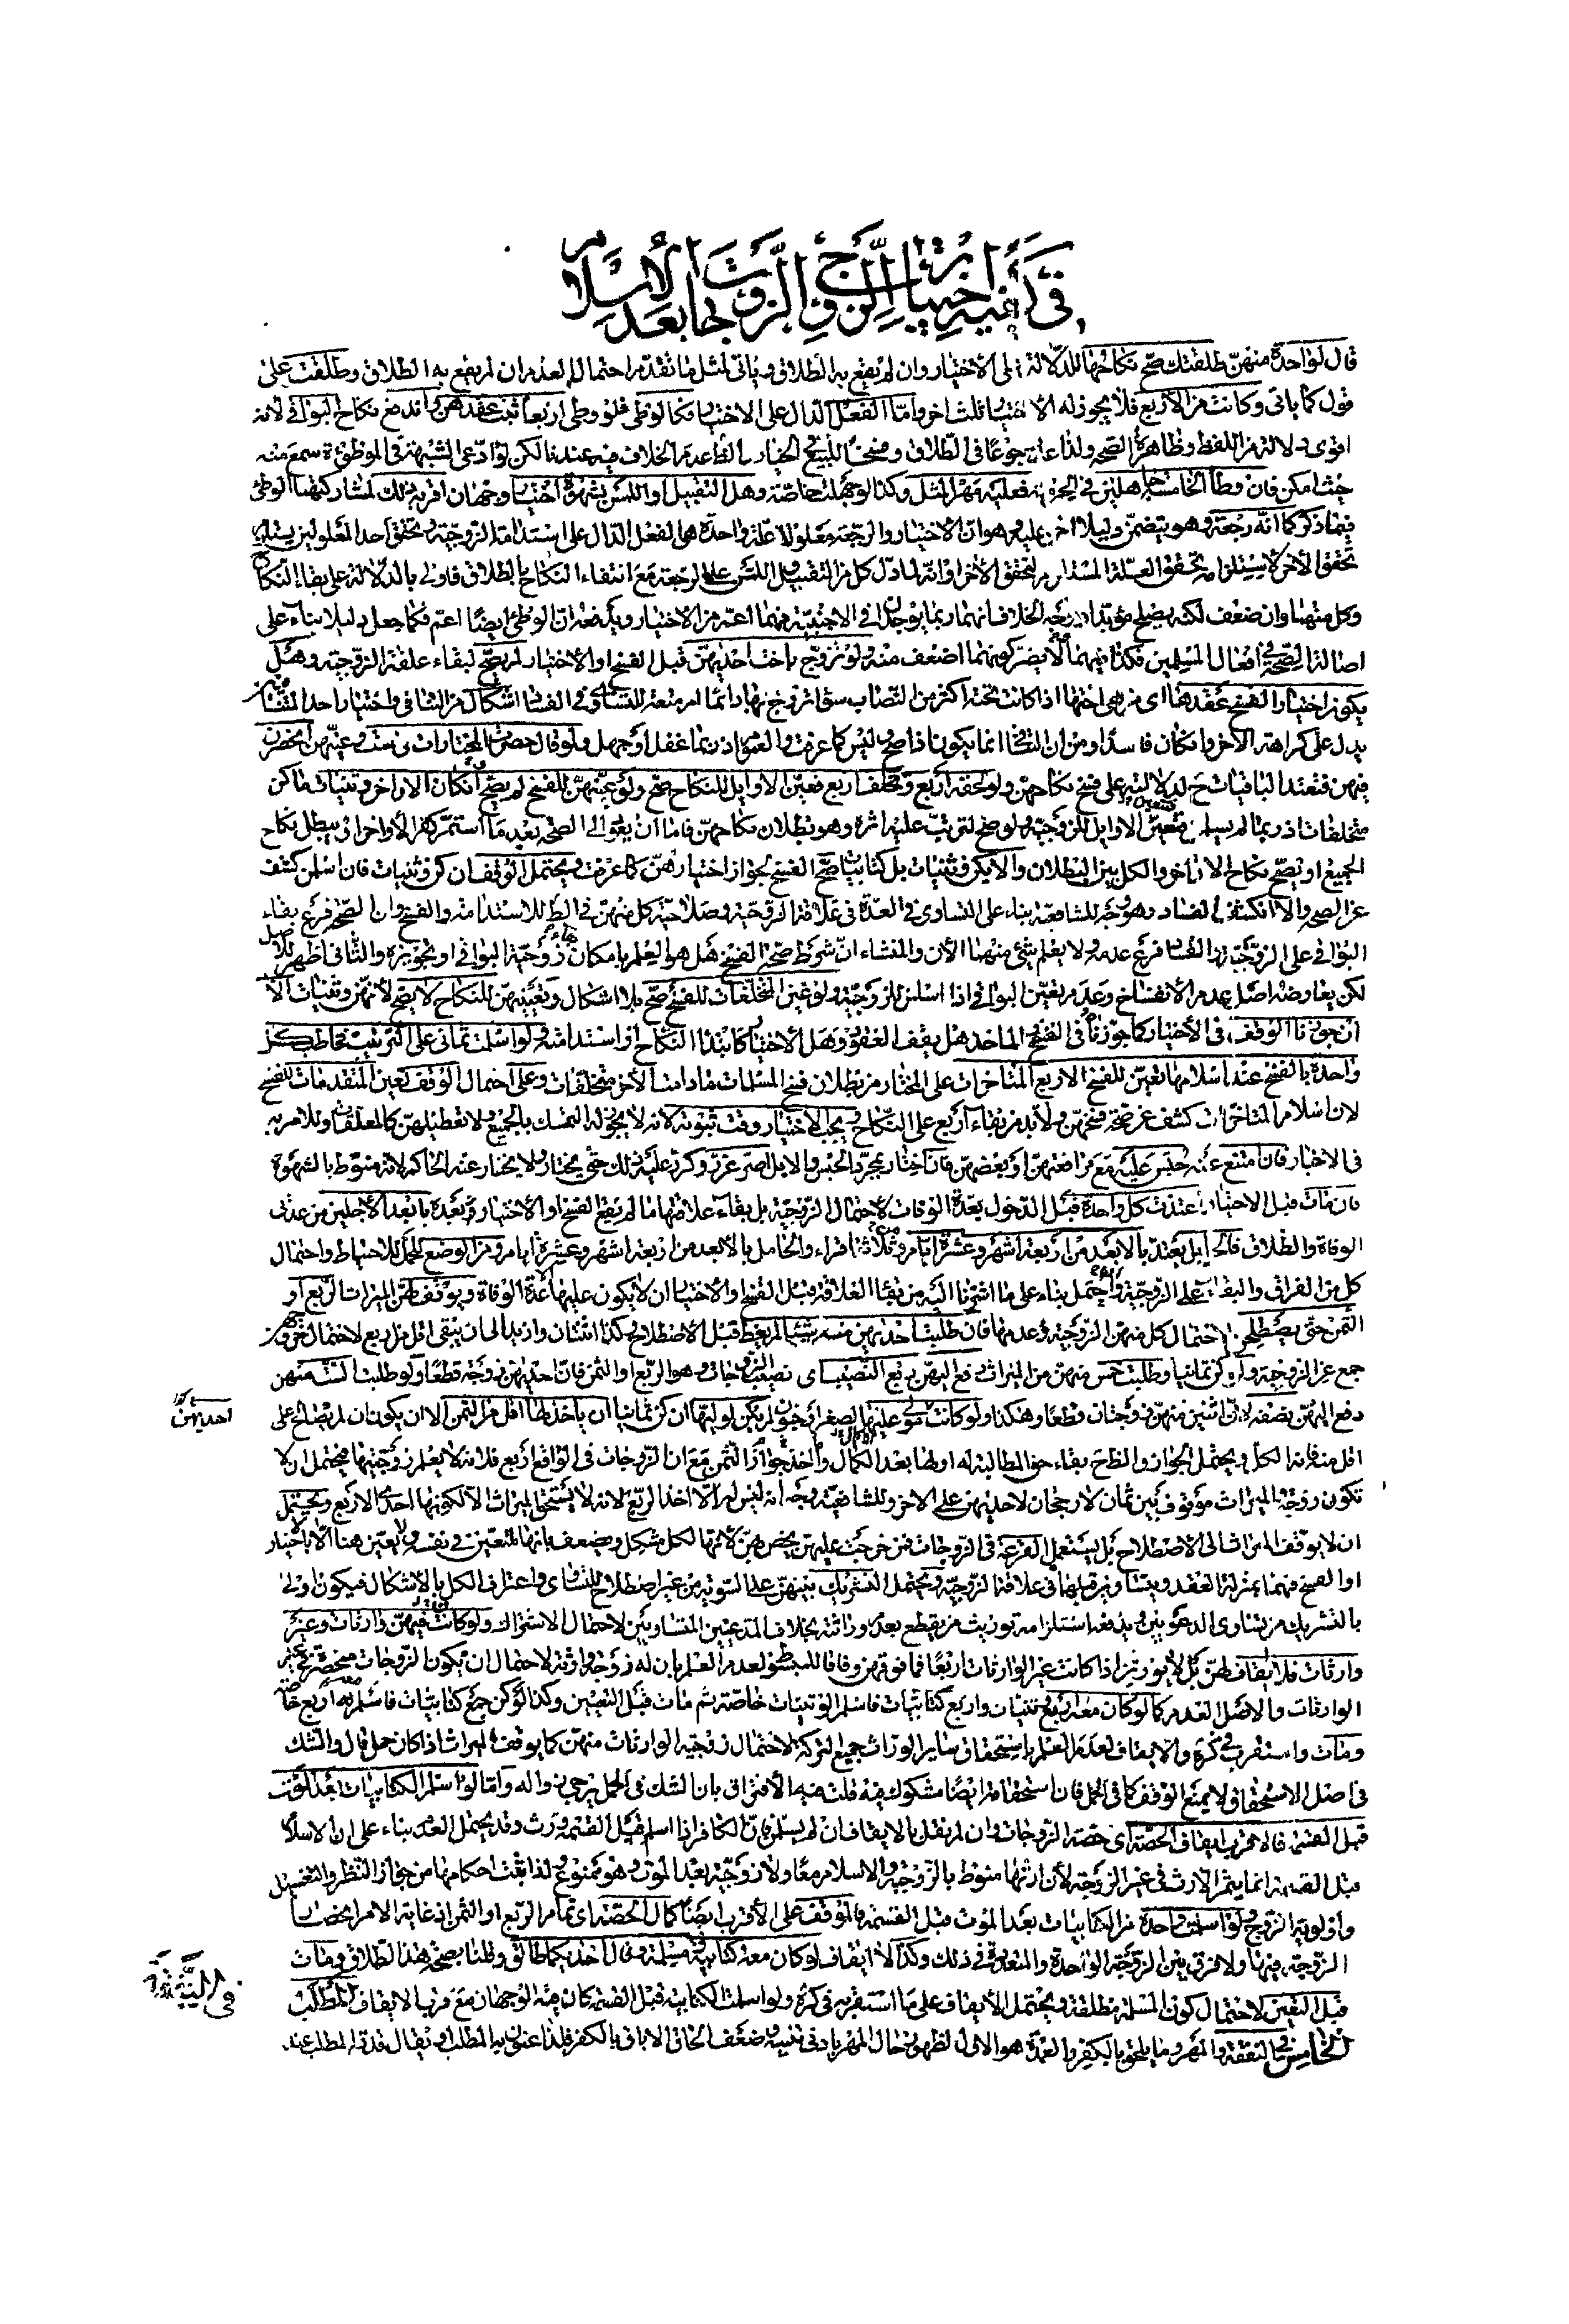 في كيفية اختيار الزوج الزوجات بعد الاسلام
قال لواحدة منهن طلقتك صح نكاحها للدلالة على الاختيار وان لم يقع به الطلاق وياتى لمثل ما تقدم احتمال العدم ان لم يقع به الطلاق وطلقت على
قول كما ياتى وكانت من الاربع فلا يجوز له الا اختيار ثلث اخر واما الفعل الدال على الاختيار فكالوطى فلو وطى اربعا ثبت عقدهن واندفع نكاح البواقي لانه
اقوى دلالة من اللفظ وظاهره الصحة ولذا عد رجوعا في الطلاق وفسخا للبيع في الخيار بالظاهر عدم الخلاف فيه عندنا لكن لو ادعى الشبهة في الموطوئة سمع منه
حيث امكن فان وطا الخامسة جاهلين في الحرمة فعليه مهر المثل وكذا لو جهلت خاصة وهل التقبيل او اللمس بشهوة اختيار وجهان اقربه ذلك لمشاركتهما الوطى
فيما ذكر كما انه رجعة وهو يتضمن دليلا اخر عليه وهو ان الاختيار والرجعة معلولا علة واحدة هى الفعل الدال على استدامة الزوجية وتحقق احد المعلولين يستلزم
تحقق الاخر لاستلزامه تحقق العلة المستلزم لتحقق الاخر او انه لما دل كل من التقبيل واللمس على الرجعة مع انتفاء النكاح بالطلاق فاولى بالدلالة على بقاء النكاح
وكل منهما وان ضعف لكنه يصلح مؤيدا وجه الخلاف انهما ربما يوجدان في الاجنبية فهما اعم من الاختيار ويدفعه ان الوطى ايضا اعم فكما جعل دليلا بناء على
اصالة الصحة في افعال المسلمين فكذا فيهما ولا يضر كونهما اضعف منه ولو تزوج باخت احديهن قبل الفسخ او الاختيار لم يصح لبقاء علقة الزوجية وهل
يكون اختيارا لفسخ عقدها اى من هى اختها اذا كانت تحته اكثر من النصاب سواء تزوج بها دائما ام متعة للتساوى في الفساد اشكال من التنافى واختيار احد المتنافيين
يدل على كراهة الاخر وان كان فاسدا ومن ان التنافى انما يكون اذا صح وليس كما عرفت والعموم اذ ربما غفل او جهل ولو قال حصرت المختارات في ست وعينهن انحصرن
فيهن فتعتد الباقيات ح لدلالته على فسخ نكاحهن ولو لحقه اربع وتخلف اربع فعين الاوايل للنكاح صح ولو عينهن للفسخ لم يصح ان كان الاواخر وثنيات ما كن
متخلفات اذ ربما لم يسلمن فتعين الاوايل للزوجية ولو صح لترتب عليه اثره وهو بطلان نكاحهن فاما ان يعود الى الصحة بعد ما استمر كفر الاواخر او يبطل نكاح
الجميع او يصح نكاح الاواخر والكل بين البطلان والا يكن وثنيات بل كتابيات صح الفسخ لجواز اختيارهن كما عرفت ويحتمل الوقف ان كن وثنيات فان اسلمن كشف
عن الصحة والا انكشف الفساد وهو وجه للشافعية بناء على التساوى في العدة في علاقة الزوجية وصلاحية كل منهن في الظ للاستدامة والفسخ وان الصحة فرع بقاء
البواقي على الزوجية والفساد فرع عدمه ولا يعلم شئ منهما الان والمنشاء ان شرط صحة الفسخ هل هو العلم بامكان زوجية البواقي او تجويزه والثاني اظهر للاصل
لكن يعارضه اصل عدم الانفساخ وعدم تعين البواقي اذا اسلمن للزوجية ولو عين المتخلفات للفسخ صح بلا اشكال وتعيينهن للنكاح لا يصح لانهن وثنيات الا
ان جوزنا الوقف في الاختيار كما جوزناه في الفسخ الماخذ هل يقف العقود وهل الاختيار كابتداء النكاح او استدامته ولو اسلمت ثمانى على الترتيب فخاطب كل
واحدة بالفسخ عند اسلامها تعين للفسخ الاربع المتاخرات على المختار من بطلان فسخ المسلمات ما دامت الاخر متخلفات وعلى احتمال الوقف تعين المتقدمات للفسخ
لان اسلام المتاخرات كشف عن صحة فسخهن ولابد من بقاء اربع على النكاح ويجب الاختيار وقت ثبوته لانه لا يجوز له التمسك بالجميع ولا تعطيلهن كالمعلقات وللامر به
في الاخبار فان امتنع عنه حبس عليه مع مرافعتهن او بعضهن فان اختار بمجرد الحبس والا بل اصر عزر وكرر عليه ذلك حتى يختار ولا يختار عنه الحاكم لانه منوط بالشهوة
فان مات قبل الاختيار اعتدت كل واحدة قبل الدخول بعدة الوفات لاحتمال الزوجية بل بقاء علاقتها ما لم يقع الفسخ او الاختيار وبعده بابعد الاجلين من عدتى
الوفاة والطلاق فالحايل يعتد بالابعد من اربعة اشهر وعشرة ايام ومن ثلاثة اقراء والحامل بالابعد من اربعة اشهر وعشرة ايام ومن الوضع الحمل للاحتياط واحتمال
كل من الفراق والبقاء على الزوجية واحتمل بناء على ما اشرنا اليه من بقاء العلاقة قبل الفسخ والاختيار ان لا يكون عليها الا عدة الوفاة ويوقف لهن الميراث الربع او
الثمن حتى يصطلحن لاحتمال كل منهن الزوجية وعدمها فان طلبت احديهن منه شيئا لم يعط قبل الاصطلاح وكذا اثنتان وازيد الى ان يبقى اقل من اربع لاحتمال خروجهن
جمع عن الزوجية وان كن ثمانيا وطلبت خمس منهن من الميراث دفع اليهن ربع النصيب اى نصيب الزوجات وهو الربع او الثمن فان احديهن زوجة قطعا ولو طلبت الست منهن
دفع اليهن نصفه لان اثنتين منهن زوجتان قطعا وهكذا ولو كانت مولى عليها لصغر او جنون لم يكن لوليها ان كن ثمانيا ان ياخذ لها اقل من الثمن الا ان يكون ان لم يصالح على
اقل منه فاته الكل ويحتمل الجواز والظ ح بقاء حق المطالبة له او لها بعد الكمال واخذ جواز الثمن مع ان الزوجات في الواقع اربع فلانه لا يعلم زوجيتها فيحتمل ان لا
تكون زوجة والميراث موقوف بين ثمان لا رجحان لاحديهن على الاخر وللشافعية وجه انه ليس لها الا اخذ الربع لانه لا يستحق الميراث الا لكونها احدى الاربع ويحتمل
ان لا يوقف الميراث الى الاصطلاح بل يستعمل القرعة في الزوجات فمن خرجت عليهن يخص بهن لانها لكل مشكل ويضعف بانها للمتعين في نفسه ولا تعين هنا الا باختيار
او الفسخ فهما بمنزلة العقد ويتساوين قبلهما في علاقة الزوجية ويحتمل التشريك بينهن على السوية من غير اصطلاح للتساوى واعتراف الكل بالاشكال فيكون اولى
بالتشريك من تساوى الدعويين ويدفعه استلزامه توريث من يقطع بعدم وراثته بخلاف المدعيين المتساويين لاحتمال الاشتراك ولو كانت فيهن وارثات وغير
وارثات فلا ايقاف لهن بل لا يورثن اذا كانت غير الوارثات اربعا فما فوقهن وفاقا للمبسوط لعدم العلم بان له زوجة وارثة لاحتمال ان يكون الزوجات منحصرة في غير
الوارثات والاصل العدم كما لو كان معه اربع وثنيات واربع كتابيات فاسلم الوثنيات خاصة ثم مات قبل التعيين وكذا لو كن جمع كتابيات فاسلم معه اربع خاصة
ومات واستقرب في كره والايقاف لعدم العلم باستحقاق ساير الوراث جميع التركة لاحتمال زوجية الوارثات منهن كما يوقف الميراث اذا كان حمل قال والشك
في اصل الاستحقاق لا يمنع الوقف كما في الحمل فان استحقاقه ايضا مشكوك فيه قلت فيه الافتراق بان الشك في الحمل يرجى زواله واما لو اسلم الكتابيات بعد الموت
قبل القسمة فالاقرب ايقاف الحصة اى حصة الزوجات وان لم نقل بالايقاف ان لم يسلمن لان الكافر اذا اسلم قبل القسمة ورث وقد يحتمل العدم بناء على ان الاسلام
قبل القسمة انما يثمر الارث في غير الزوجة لان ارثها منوط بالزوجية والاسلام معا ولا زوجية بعد الموت وهو ممنوع ولذا بقت احكامها من جواز النظر والتغسيل
واولوية الزوج ولو اسلمت واحدة من الكتابيات بعد الموت قبل القسمة فالموقف على الاقرب ايضا كمال الحصة اى تمام الربع او الثمن اذ غاية الامر انحصار
الزوجية فيها ولا فرق بين الزوجة الواحدة والمتعددة في ذلك وكذا لا ايقاف لو كان معه كتابية ومسلمة وقال احديكما طالق وقلنا بصحة هذا الطلاق ومات
قبل التعيين لاحتمال كون المسلمة مطلقة ويحتمل الايقاف على ما استقربه في كره ولو اسلمت الكتابية قبل القسمة كان فيه الوجهان مع قرب الايقاف المطلب
الخامس في النفقة والمهر وما يلحق بالكفر والعمدة هو الاول لظهور حال المهر
احديهن